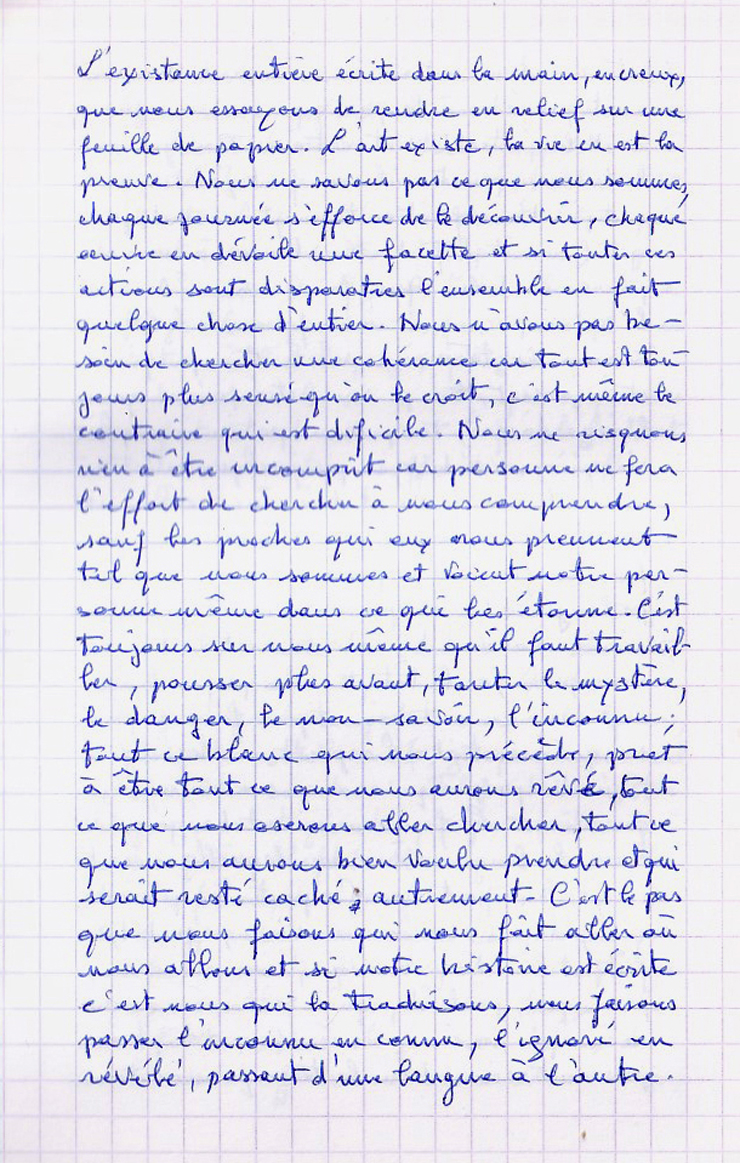 L'existance entière écrite dans la main, en creux,
que nous essayons de rendre en relief sur une
feuille de papier. L'art existe, la vie en est la
preuve. Nous ne savons pas ce que nous sommes,
chaque journée s'efforce de le découvrir, chaque
œuvre en dévoile une facette et si toutes ces
actions sont disparatres l'ensemble en fait
quelque chose d'entier. Nous n'avons pas be-
soin de chercher une cohérance car tout est tou
jours plus sensé qu'on le croit, c'est même le
contraire qui est dificile. Nous ne risquons
rien à être incomprit car personne ne fera
l'effort de chercher à nous comprendre,
sauf les proches qui eux nous prennent
tel que nous sommes et voient notre per-
sonne même dans ce qui les étonne. C'est
toujours sur nous même qu'il faut travail-
ler, pousser plus avant, tenter le mystère,
le danger, le non-savoir, l'inconnu;
tout ce blanc qui nous précède, pret
à être tout ce que nous aurons rêvé, tout
ce que nous oserons aller chercher, tout ce
que nous aurons bien voulu prendre et qui
serait resté caché autrement. C'est le pas
que nous faisons qui nous fait aller où
nous allons et si notre histoire est écrite
c'est nous qui la traduisons, nous faisons
passer l'inconnu en connu, l'ignoré en
révélé, passant d'une langue à l'autre.